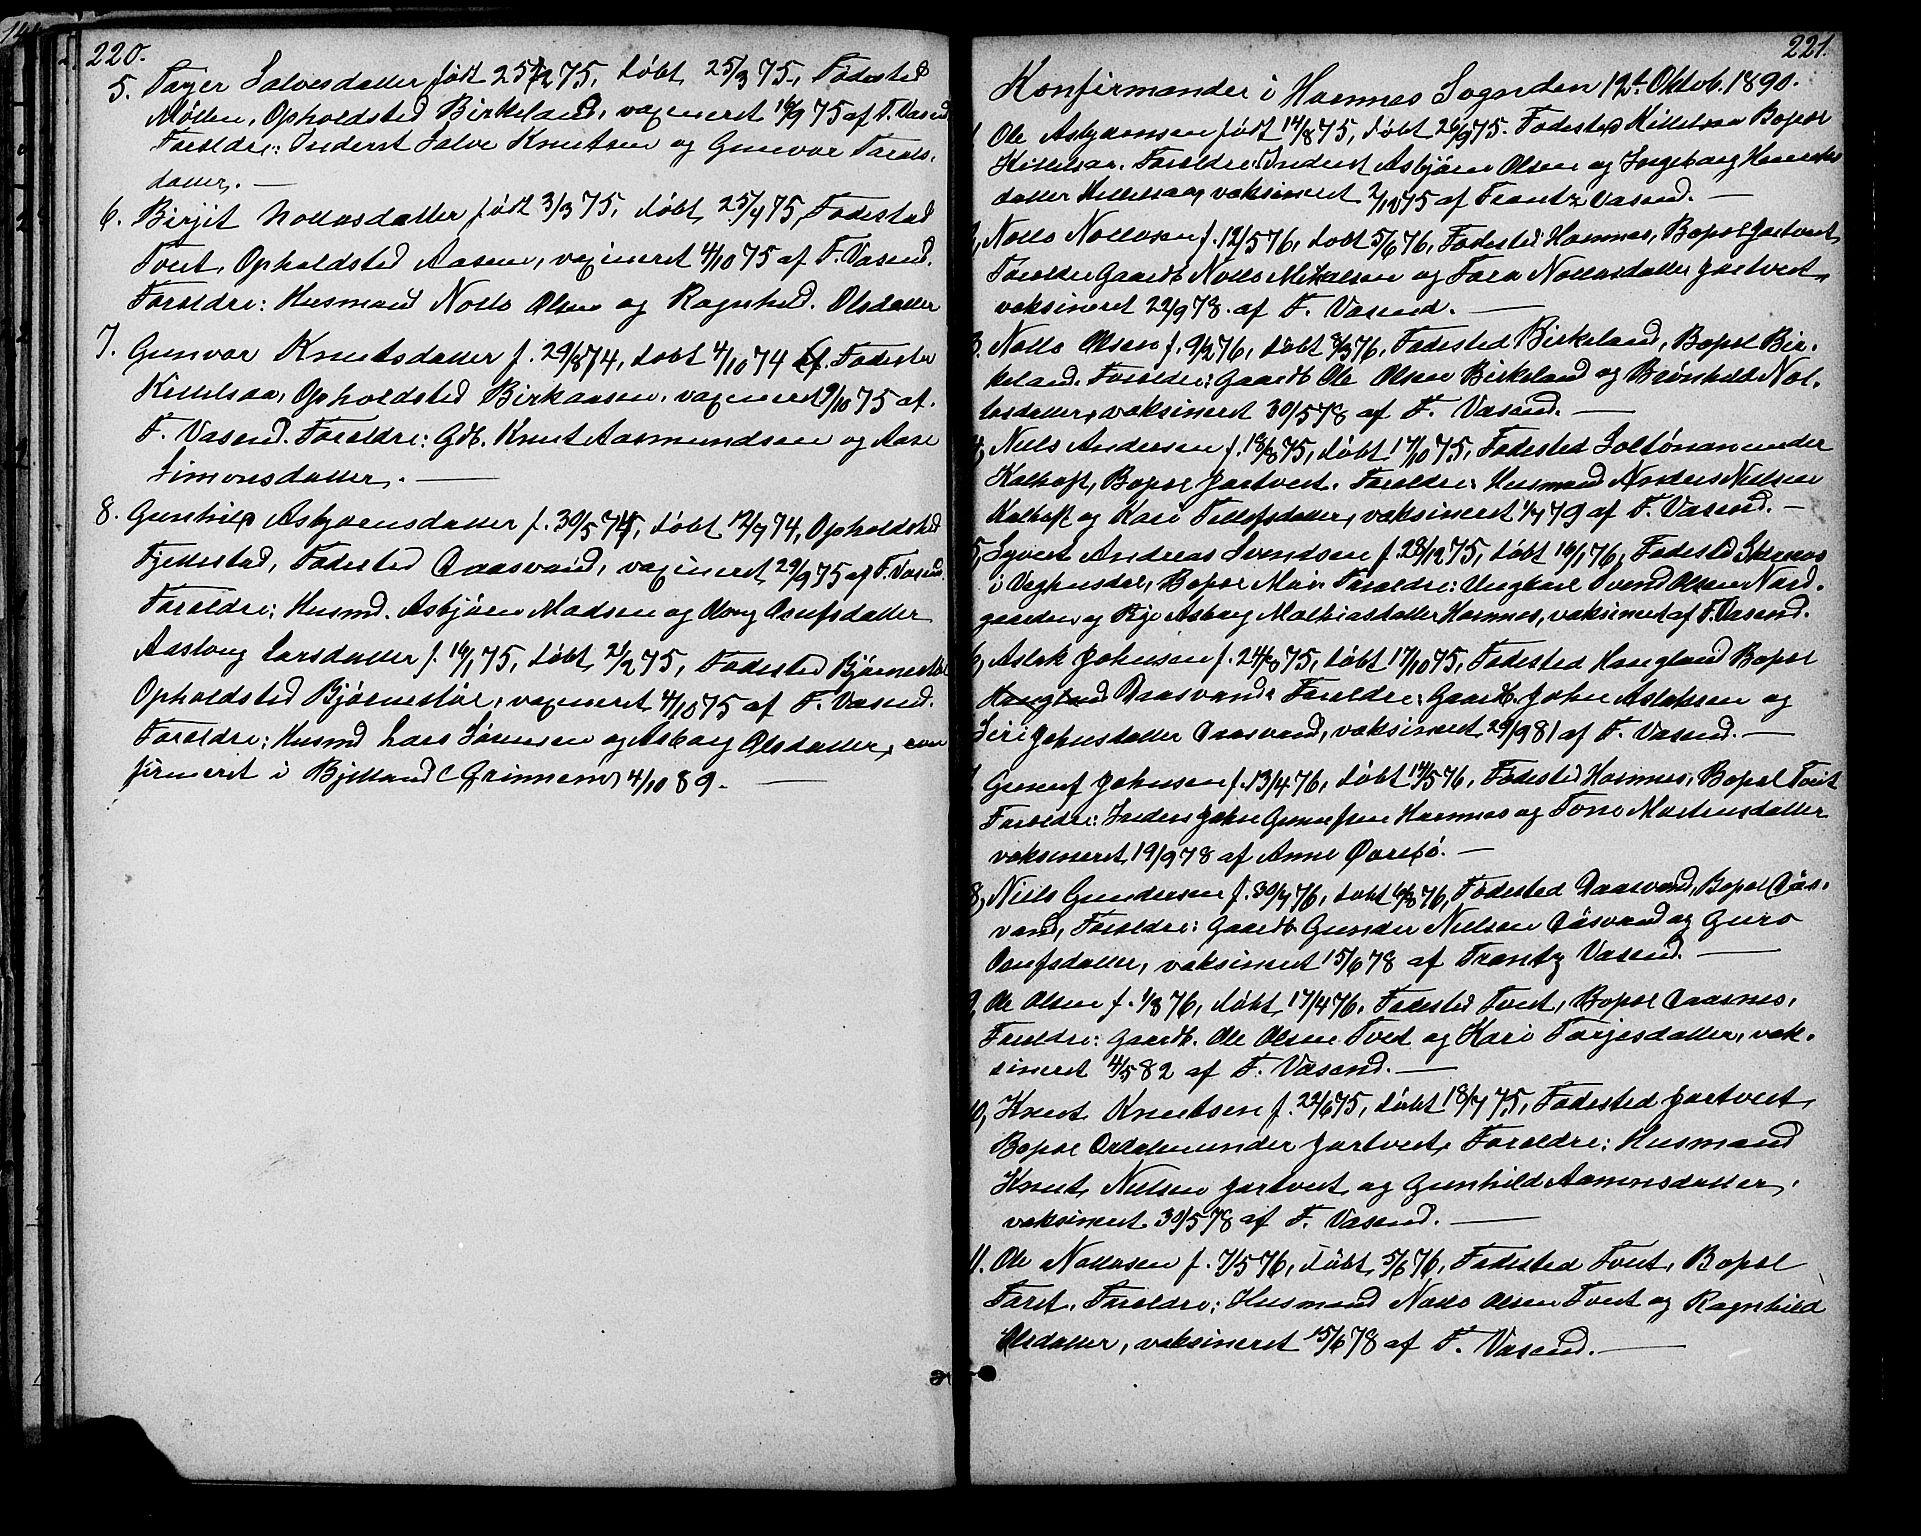 220.
5. Tayer Salvesdatter født 25/2 75, døbt 25/3 75, Fødested
Møllen, Opholdsted Birkeland, vaxineret 16/9 75 af F. Vasend
Forældre: Inderst Salve Knutsen og Gunvor Tarals-
datter. —
6. Birjit Nollosdatter født 3/3 75, døbt 25/4 75, Fødested
Tveit, Opholdsted Aasen, vaxineret 4/10 75 af F. Vasend.
Forældre: Husmand Nollo Olsen og Ragnhild Olsdatter
7. Gunvor Knutsdatter f. 29/8 74, døbt 4/10 74 Fødested
Killelsaa, Opholdsted Birkaasen, vaxineret 9/10 75 af
F. Vasend. Forældre: Gdb. Knut Aasmundsen og Aase
Simonsdatter. —
8. Gunhild Asbjørnsdatter f. 30/5 74, døbt 12/7 74, Opholdsted
Fjellestad, Fødested Daasvand, vaxineret 29/9 75 af F. Vasend.
Forældre: Husmd. Asbjørn Madsen og Olsdatter
Aaslaug Larsdatter f. 16/1 75, døbt 21/2 75, Fødested Bjørnestøl
Opholdsted Bjørnestøl, vaxineret 4/10 75 af F. Vasend.
Forældre: Husmd Lars Sørensen og Asborg Olsdatter, con
firmeret i Bjelland (Grinnem) 4/10 89. —
221.
Konfirmander i Hornnes Sogn den 12te Oktob. 1890.
1. Ole Asbjørnsen født 14/8 75, døbt 26/9 75. Fødested Killelsaa Bopæl
Killelsaa. Forældre: Inderst Asbjørn Olsen og Ingeborg
datter Killelsaa, vaksineret 2/10 75 af Frantz Vasend. —
2, Nollo Nollosen f. 12/5 76, døbt 5/6 76, Fødested Hornnes, Bopæl Jortveit,
Forældre Gaardb. Nollo Mikalsen og Tora Nollosdatter Jortveit,
vaksineret 22/9 78. af F. Vasend. —
3. Nollo Olsen f. 9/2 76, døbt 3/3 76, Fødested Birkeland, Bopæl Bir-
keland. Forældre: Gaardb. Ole Olsen Birkeland og Brønhild Nol-
losdatter, vaksineret 30/5 78 af F. Vasend. —
4, Niels Andersen f. 18/8 75, døbt 17/10 75, Fødested under
Kalhoft, Bopæl Jortveit. Forældre: Husmand Anders Nielsen
Kalhoft og Kari Tellefsdatter, vaksineret 1/7 79 af F. Vasend. —
5, Syvert Andreas Svendsen f. 28/12 75, døbt 16/1 76, Fødested
i Veghusdal, Bopæl Moi. Forældre: Ungkarl Svend Olsen Nord-
gaarden og Pige Asborg Mathiasdatter Hornnes, vaksineret af F. Vasend.
6, Aslak Johnsen f. 24/8 75, døbt 17/10 75, Fødested Haugland Bopæl
Haugland Daasvand. Forældre: Gaardb. John Aslaksen og
Siri Johnsdatter Daasvand, vaksineret 29/9 81 af F. Vasend. —
7. Gunuf Johnsen f. 13/4 76, døbt 14/5 76, Fødested Hornnes, Bopæl Tveit
Forældre: Inderst John Gunufsen Hornnes og Tone Mortensdatter
vaksineret 19/9 78 af Anne Øvrebø. —
8, Niels Gundersen f. 30/7 76, døbt 6/8 76, Fødested Daasvand, Bopæl Dås-
vand, Forældre: Gaardb. Gunder Nielsen Dåsvand og Guro
Onufsdatter, vaksineret 15/6 78 af Frantz Vasend. —
9, Ole Olsen f. 1/3 76, døbt 17/4 76, Fødested Tveit, Bopæl Daasnes,
Forældre: Gaardb. Ole Olsen Tveit og Kari Torjesdatter, vak-
sineret 4/5 82 af F. Vasend. —
10, Knut Knutsen f. 22/6 75, døbt 18/7 75, Fødested Jortveit,
Bopæl Odden under Jortveit, Forældre: Husmand
Knut Nielsen Jortveit og Gunhild Aamunsdatter,
vaksineret 30/5 78 af F. Vasend. —
11. Ole Nollosen f. 7/5 76, døbt 5/6 76, Fødested Tveit, Bopæl
Tveit, Forældre: Husmand Nollo Olsen Tveit og Ragnhild
Olsdatter, vaksineret 15/6 78 af F. Vasend. —